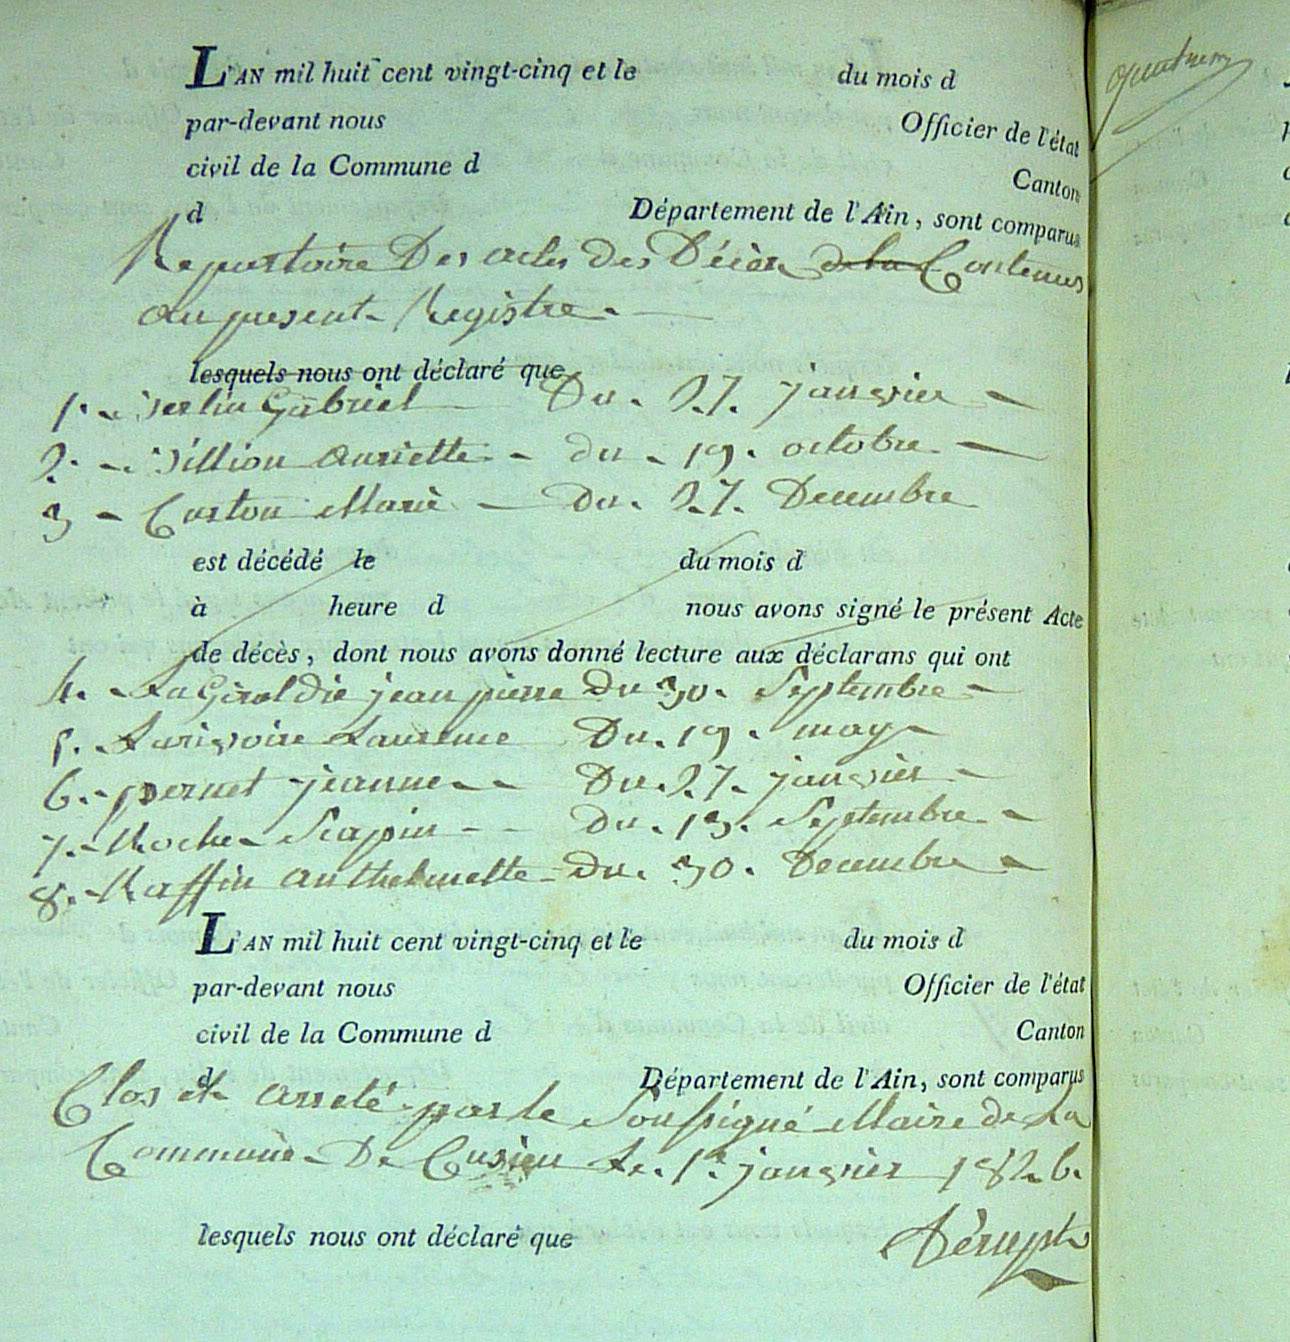 L'AN mil huit cent vingt-cinq et le du mois d
par-devant nous Officier de l'état
civil de la Commune d Canton
d Département de l'Ain, sont comparus
Repertoire Des actes Des Décès de la Contenus
au present Registre.
lesquels nous ont déclaré que
1. Gabriel Du. 27. janvier
2. du. 19. octobre
3 Marie Du. 27. Decembre
est décédé le du mois d
à heure d nous avons signé le présent Acte
de décès, dont nous avons donné lecture aux déclarans qui ont
4. jean pierre Du 30. Septembre
5. Laurence Du. 19. may
6. pernet jeanne Du. 27. janvier
7. Roche Du. 13. Septembre
8. Raffin anthelmette Du. 30. Decembre
L'AN mil huit cent vingt-cinq et le du mois d
par-devant nous Officier de l'état
civil de la Commune d Canton
d Département de l'Ain, sont comparus
Clos et arreté par le Soussigné Maire de La
Commune De Cusieu Le. 1er janvier 1826.
lesquels nous ont déclaré que